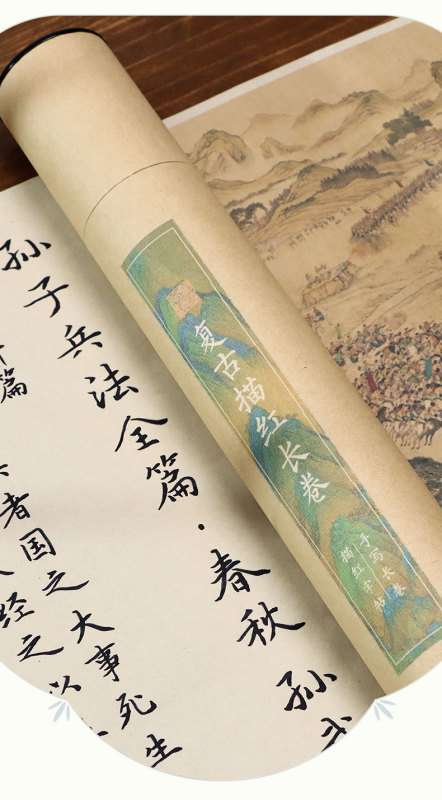 复古描红长卷
手写长卷
描红字帖
孙子兵法全篇·春秋 孙武
篇
者国之大事死生
经之以